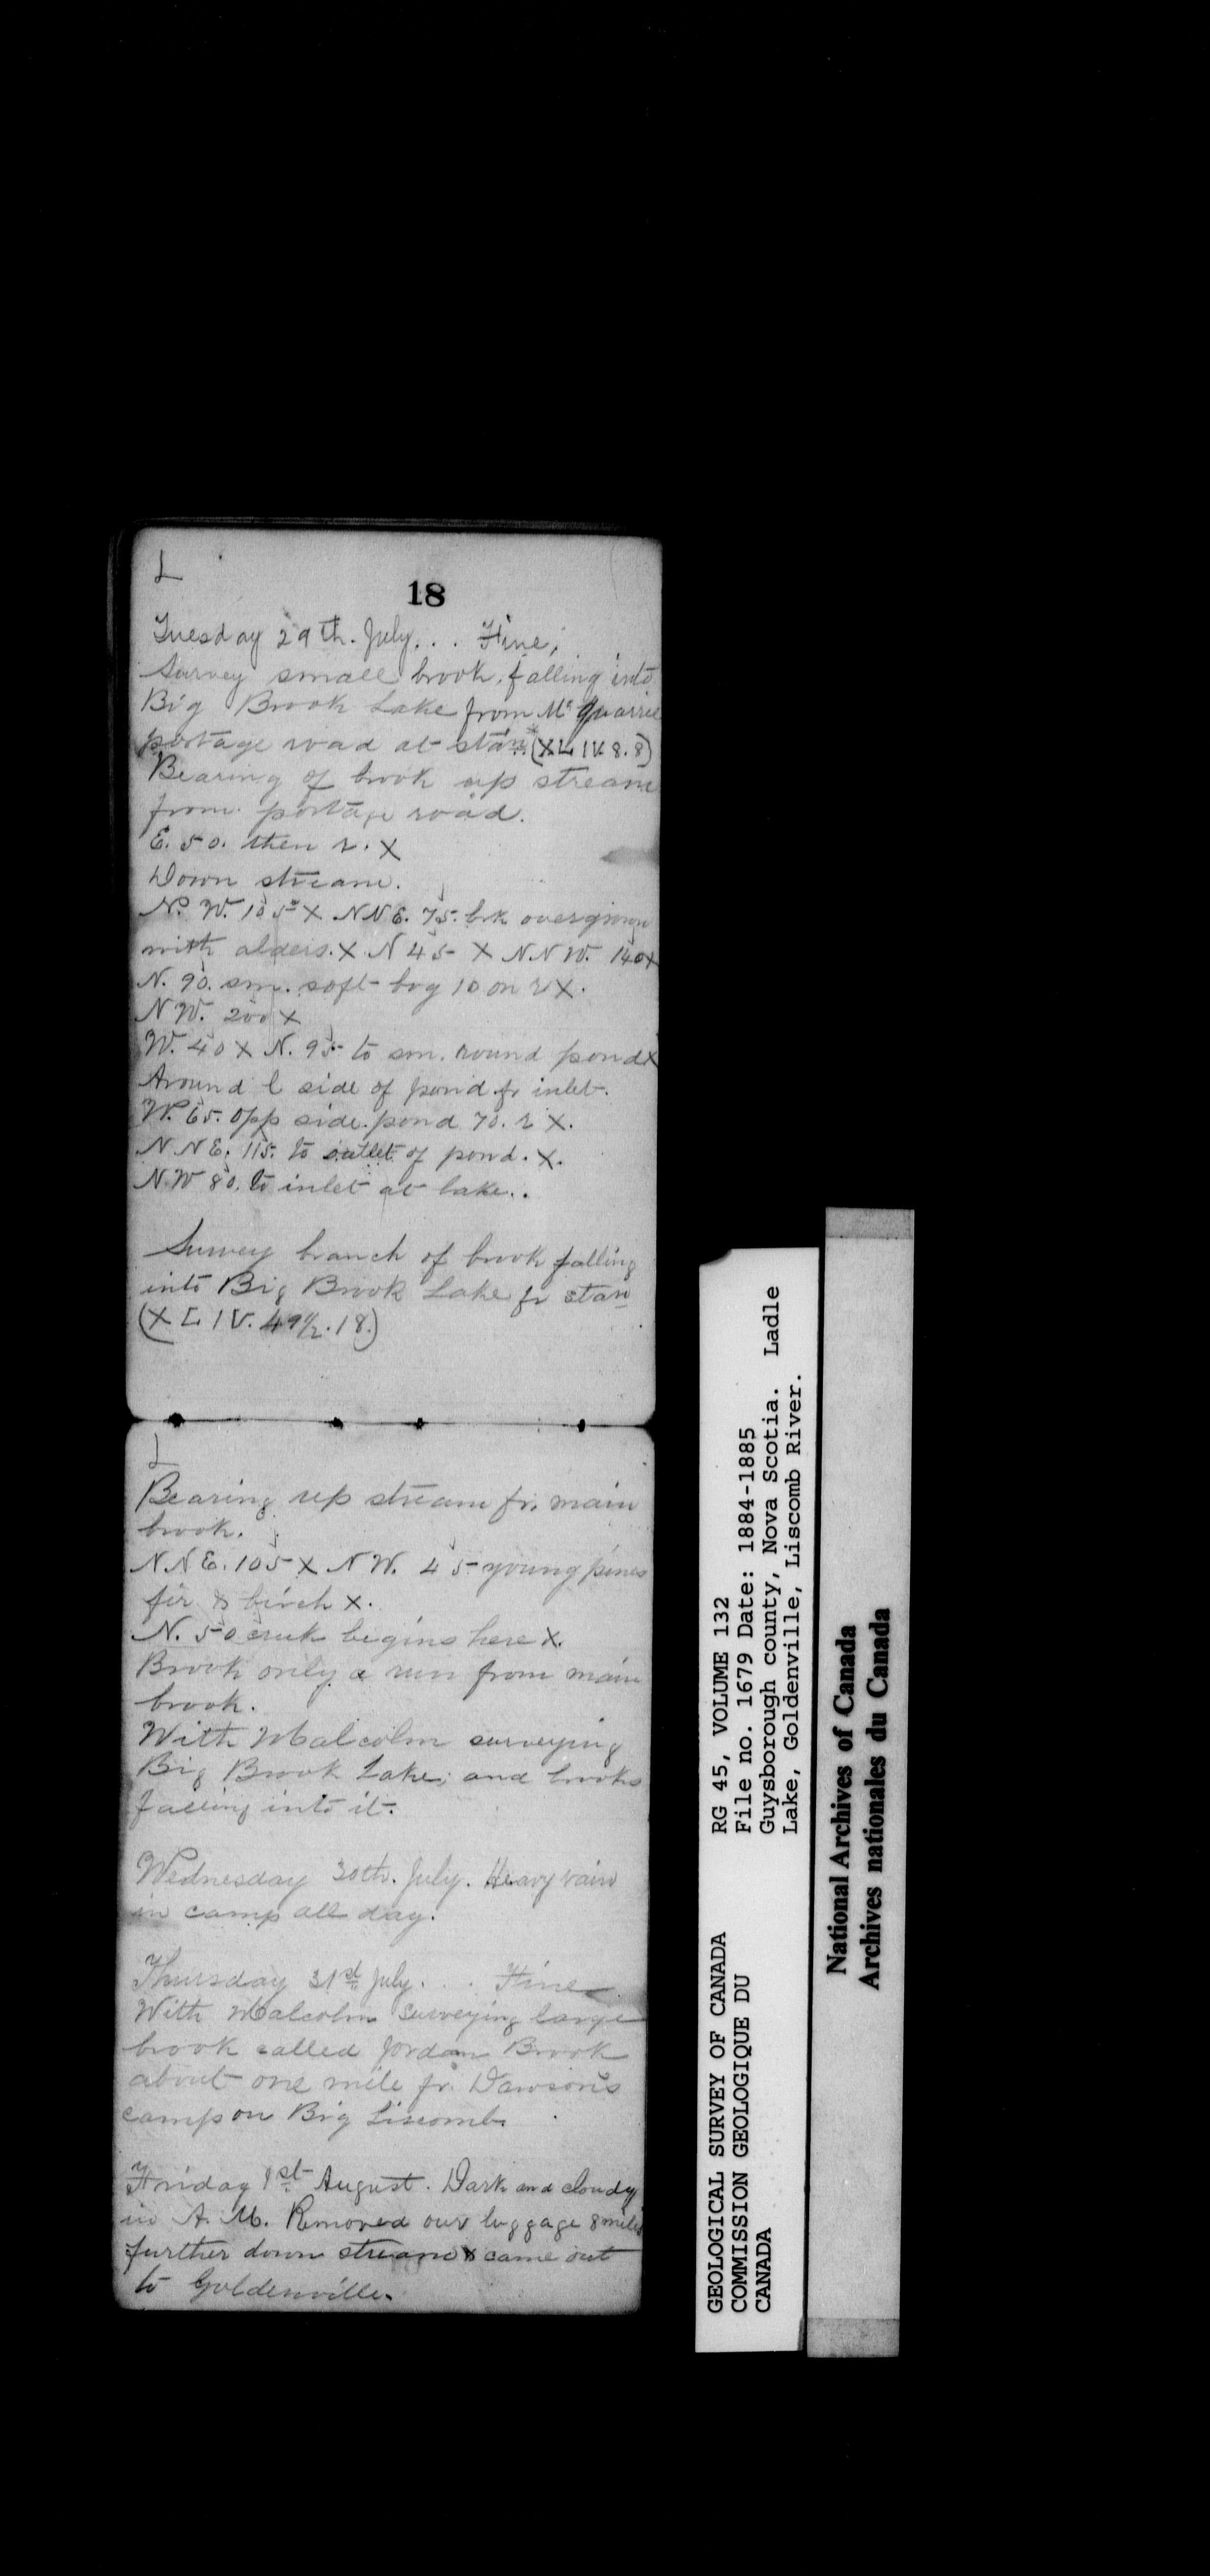 L
18
Tuesday 29th. July. . . Fine.
Survey small brook falling into
Big Brook Lake from Mc Quarrie
portage road at stan (XLIV. 8. 8)
Bearing of brook up stream
from portage road.
E. 50. then r. X
Down stream.
N. W. 105 X NNE. 75. brk overgrown
with alders. X N 45 X N.N W. 140 X
N. 90. sm. soft bog 10 on r X.
NW. 200 X
W. 40 X N. 95 to sm. round pond X
Around l side of pond fr inlet.
W. 65. opp side pond 70. r X.
N NE. 115. to outlet of pond. X.
N.W 80. to inlet at lake..
Survey branch of brook falling
into Big Brook Lake fr stan
(XLIV. 49½. 18.)
L
Bearing up stream fr. main
brook.
N N E. 105 X N W. 45 young pines
fir & birch X.
N. 50 creek begins here X.
Brook only a run from main
brook.
With Malcolm surveying
Big Brook Lake; and brooks
falling into it.
Wednesday 30th. July. Heavy rain
in camp all day.
Thursday 31st July. . Fine
With Malcolm surveying large
brook called Jordan Brook
about one mile fr. Dawson's
camp on Big Liscomb.
Friday 1st August. Dark and cloudy
in A. M. Removed our luggage 8 miles
further down stream & came out
to Goldenville.
GEOLOGICAL SURVEY OF CANADA
COMMISSION GEOLOGIQUE DU
CANADA
RG 45, VOLUME 132
File no. 1679 Date: 1884-1885
Guysborough county, Nova Scotia. Ladle
Lake, Goldenville, Liscomb River.
National Archives of Canada
Archives nationales du Canada